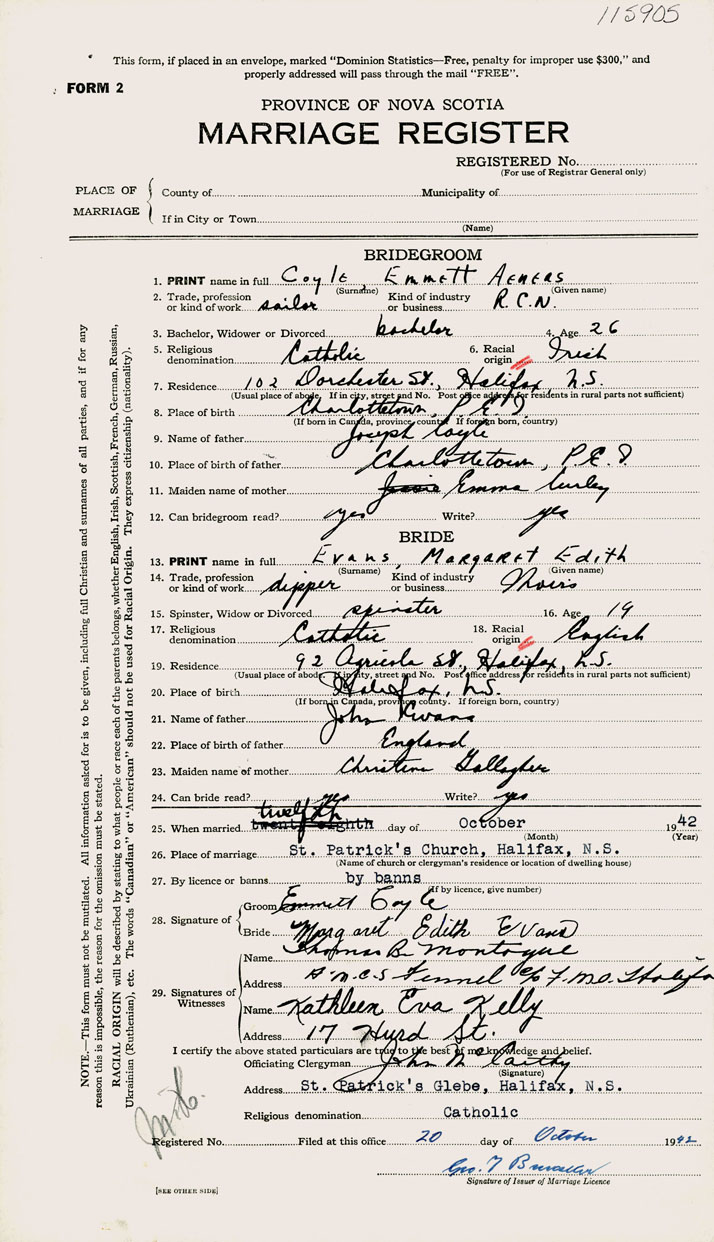 115905
This form, if placed in an envelope, marked "Dominion Statistics—Free, penalty for improper use $300," and
properly addressed will pass through the mail "FREE".
FORM 2
PROVINCE OF NOVA SCOTIA
MARRIAGE REGISTER
REGISTERED No.
(For use of Registrar General only)
PLACE OF MARRIAGE
County of Municipality of
If in City or Town
(Name)
BRIDEGROOM
1. PRINT name in full Coyle, Emmett
(Surname) (Given name)
2. Trade, profession or kind of work sailor Kind of industry or business R.C.N.
3. Bachelor, Widower or Divorced bachelor 4. Age 26
5. Religious denomination Catholic 6. Racial origin Irish
7. Residence 102 Dorchester St., Halifax, N.S.
(Usual place of abode. If in city, street and No. Post office address for residents in rural parts not sufficient)
8. Place of birth Charlottetown, P.E.I.
(If born in Canada, province, county. If foreign born, country)
9. Name of father Joseph Coyle
10. Place of birth of father Charlottetown, P.E.I.
11. Maiden name of mother Emma Curley
12. Can bridegroom read? yes Write? yes
BRIDE
13. PRINT name in full Evans, Margaret Edith
(Surname) (Given name)
14. Trade, profession or kind of work dipper Kind of industry or business Moirs
15. Spinster, Widow or Divorced spinster 16. Age 19
17. Religious denomination Catholic 18. Racial origin English
19. Residence 92 Agricola St., Halifax, N.S.
(Usual place of abode. If in city, street and No. Post office address for residents in rural parts not sufficient)
20. Place of birth Halifax, N.S.
(If born in Canada, province, county. If foreign born, country)
21. Name of father John Evans
22. Place of birth of father England
23. Maiden name of mother Christina Gallagher
24. Can bride read? yes Write? yes
twelfth
25. When married twenty eighth day of October 1942
(Month) (Year)
26. Place of marriage St. Patrick's Church, Halifax, N.S.
(Name of church or clergyman's residence or location of dwelling house)
27. By licence or banns by banns
(If by licence, give number)
28. Signature of
Groom Emmett Coyle
Bride Margaret Edith Evans
29. Signatures of Witnesses
Name Thomas B. Montague
Address H.M.C.S. Fennel c/o F.M.O. Halifax
Name Kathleen Eva Kelly
Address 17 Hurd St.
I certify the above stated particulars are true to the best of my knowledge and belief.
Officiating Clergyman John McCarthy
(Signature)
Address St. Patrick's Glebe, Halifax, N.S.
Religious denomination Catholic
Registered No. Filed at this office 20 day of October 1942
Geo. T.
Signature of Issuer of Marriage Licence
[SEE OTHER SIDE]
NOTE.—This form must not be mutilated. All information asked for is to be given, including full Christian and surnames of all parties, and if for any
reason this is impossible, the reason for the omission must be stated.
RACIAL ORIGIN will be described by stating to what people or race each of the parents belongs, whether English, Irish, Scottish, French, German, Russian,
Ukrainian (Ruthenian), etc. The words "Canadian" or "American" should not be used for Racial Origin. They express citizenship (nationality).